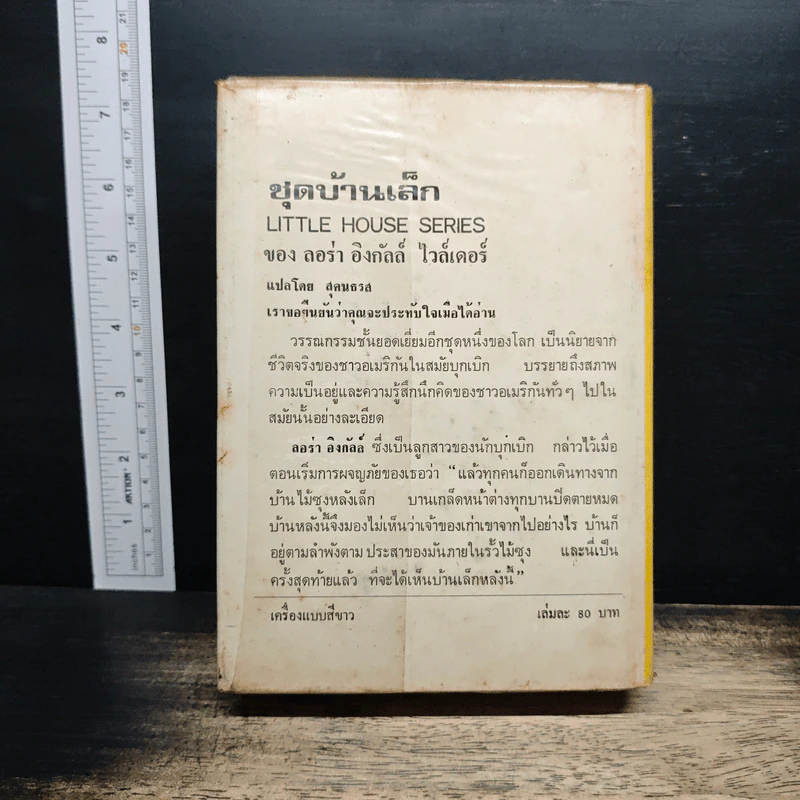 ชุดบ้านเล็ก
LITTLE HOUSE SERIES
ของ ลอร่า อิงกัลล์ ไวล์เดอร์
แปลโดย สุคนธรส
เราขอยืนยันว่าคุณจะประทับใจเมื่อได้อ่าน
วรรณกรรมชั้นยอดเยี่ยมอีกชุดหนึ่งของโลก เป็นนิยายจาก
ชีวิตจริงของชาวอเมริกันในสมัยบุกเบิก บรรยายถึงสภาพ
ความเป็นอยู่และความรู้สึกนึกคิดของชาวอเมริกันทั่วๆ ไปใน
สมัยนั้นอย่างละเอียด
ลอร่า อิงกัลล์ ซึ่งเป็นลูกสาวของนักบุกเบิก กล่าวไว้เมื่อ
ตอนเริ่มการผจญภัยของเธอว่า “แล้วทุกคนก็ออกเดินทางจาก
บ้านไม้ซุงหลังเล็ก บานเกล็ดหน้าต่างทุกบานปิดตายหมด
บ้านหลังนี้จึงมองไม่เห็นว่าเจ้าของเก่าเขาจากไปอย่างไร บ้านก็
อยู่ตามลำพังตาม ประสาของมันภายในรั้วไม้ซุง และนี่เป็น
ครั้งสุดท้ายแล้ว ที่จะได้เห็นบ้านเล็กหลังนี้”
เครื่องแบบสีขาว เล่มละ 80 บาท
8
7
6
5
4
3
2
1
inches
AKTION
21
20
19
18
17
16
15
14
13
12
11
10
9
8
7
6
5
4
3
2
1